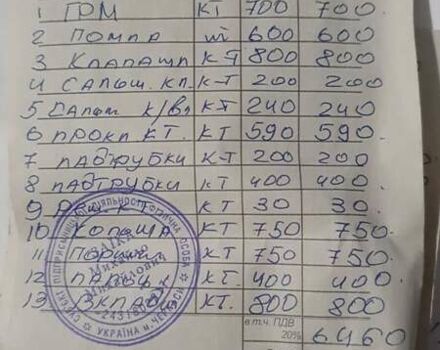 1 ГРМ КТ 700 700
2 ПОМПА ш 600 600
3 КЛАПАНЩ К-Т 800 800
4 САЛЬШ. КЛ. К-Т 200 200
5 САЛЬШ К/В КТ 240 240
6 ПРОКЛ К.Т. КТ 590 590
7 ПАДТРУБКИ К-Т 200 200
8 ПАДТРУБКИ КТ 400 400
9 КТ 30 30
10 КТ 750 750
11 КТ 750 750
12 КТ. 400 400
13 ВКЛАД КТ. 800 800
в т.ч. ПДВ 20% 6460
УКРАЇНА м. ЧЕРКАСИ